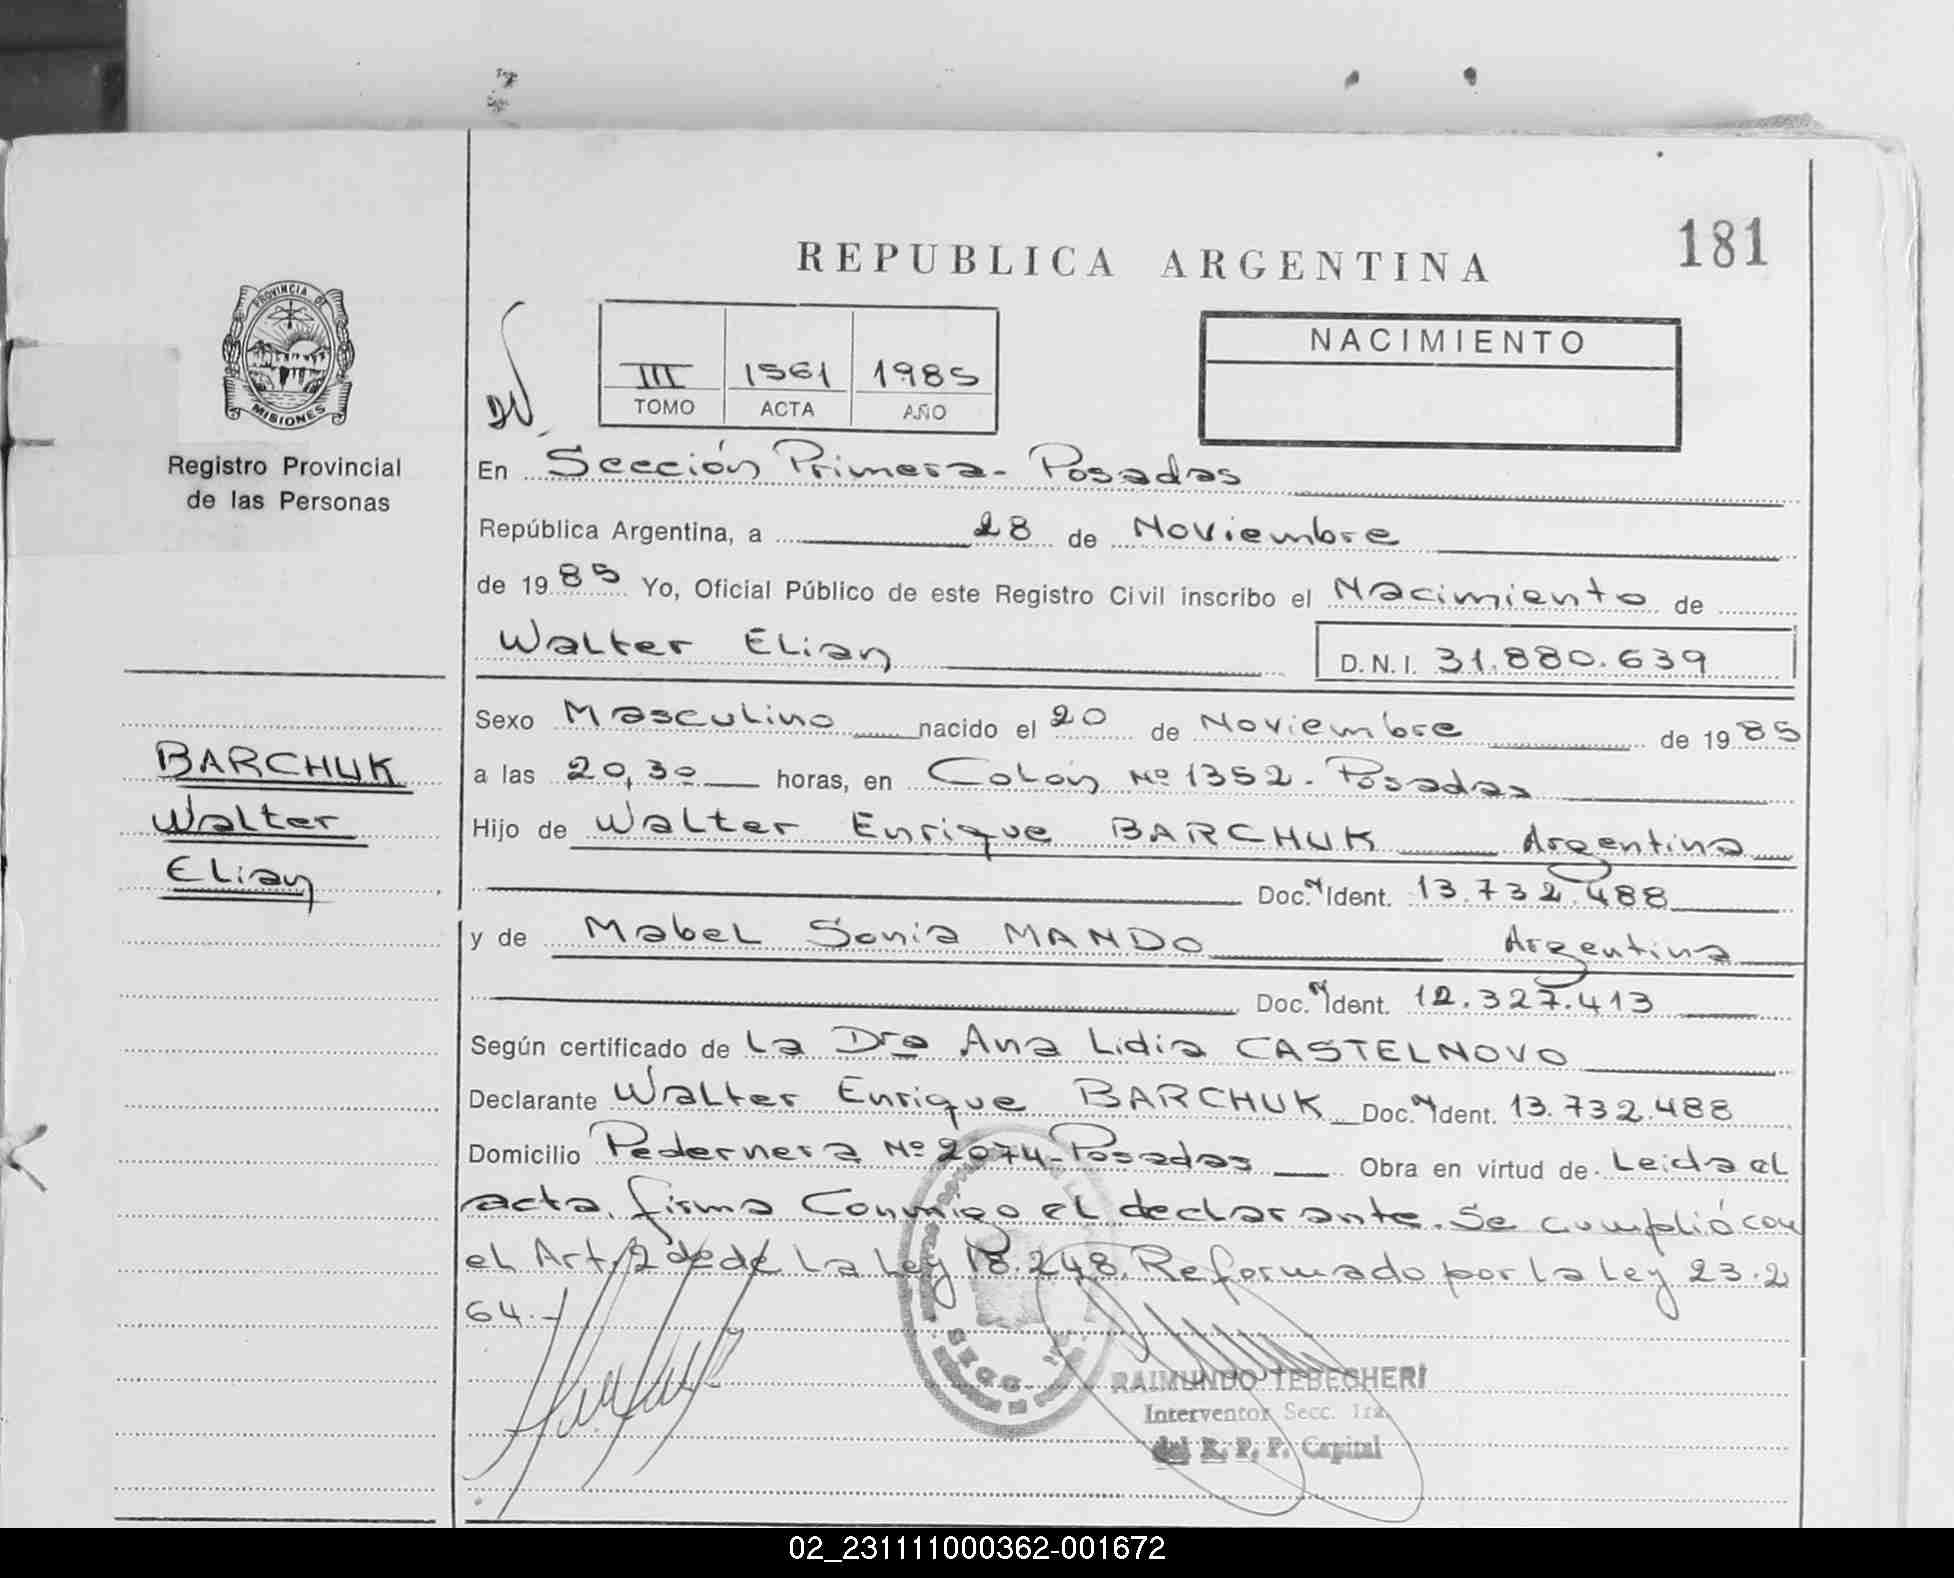 181
REPUBLICA ARGENTINA
PROVINCIA DE
MISIONES
Registro Provincial
de las Personas
III 1561 1985
TOMO ACTA AÑO
NACIMIENTO
En Sección Primera - Posadas
República Argentina, a 28 de Noviembre
de 1985 Yo, Oficial Público de este Registro Civil inscribo el Nacimiento de
Walter Elian D.N.I. 31.880.639
Sexo Masculino nacido el 20 de Noviembre de 1985
BARCHUK
Walter
Elian
a las 20,30 horas, en Colón Nº 1352 - Posadas
Hijo de Walter Enrique BARCHUK Argentina
Doc. N Ident. 13.732.488
y de Mabel Sonia MANDO Argentina
Doc. N Ident. 12.327.413
Según certificado de La Dra Ana Lidia CASTELNOVO
Declarante Walter Enrique BARCHUK Doc. N Ident. 13.732.488
Domicilio Pedernera Nº 2074 - Posadas Obra en virtud de Leida el
acta, firma Conmigo el declarante. Se cumplió con
el Art. 2 de de La Ley 18.248. Reformado por la Ley 23.2
64.-
RAIMUNDO TEBECHERI
Interventor Secc. 1ra.
del R. P. P. Capital
02_231111000362-001672